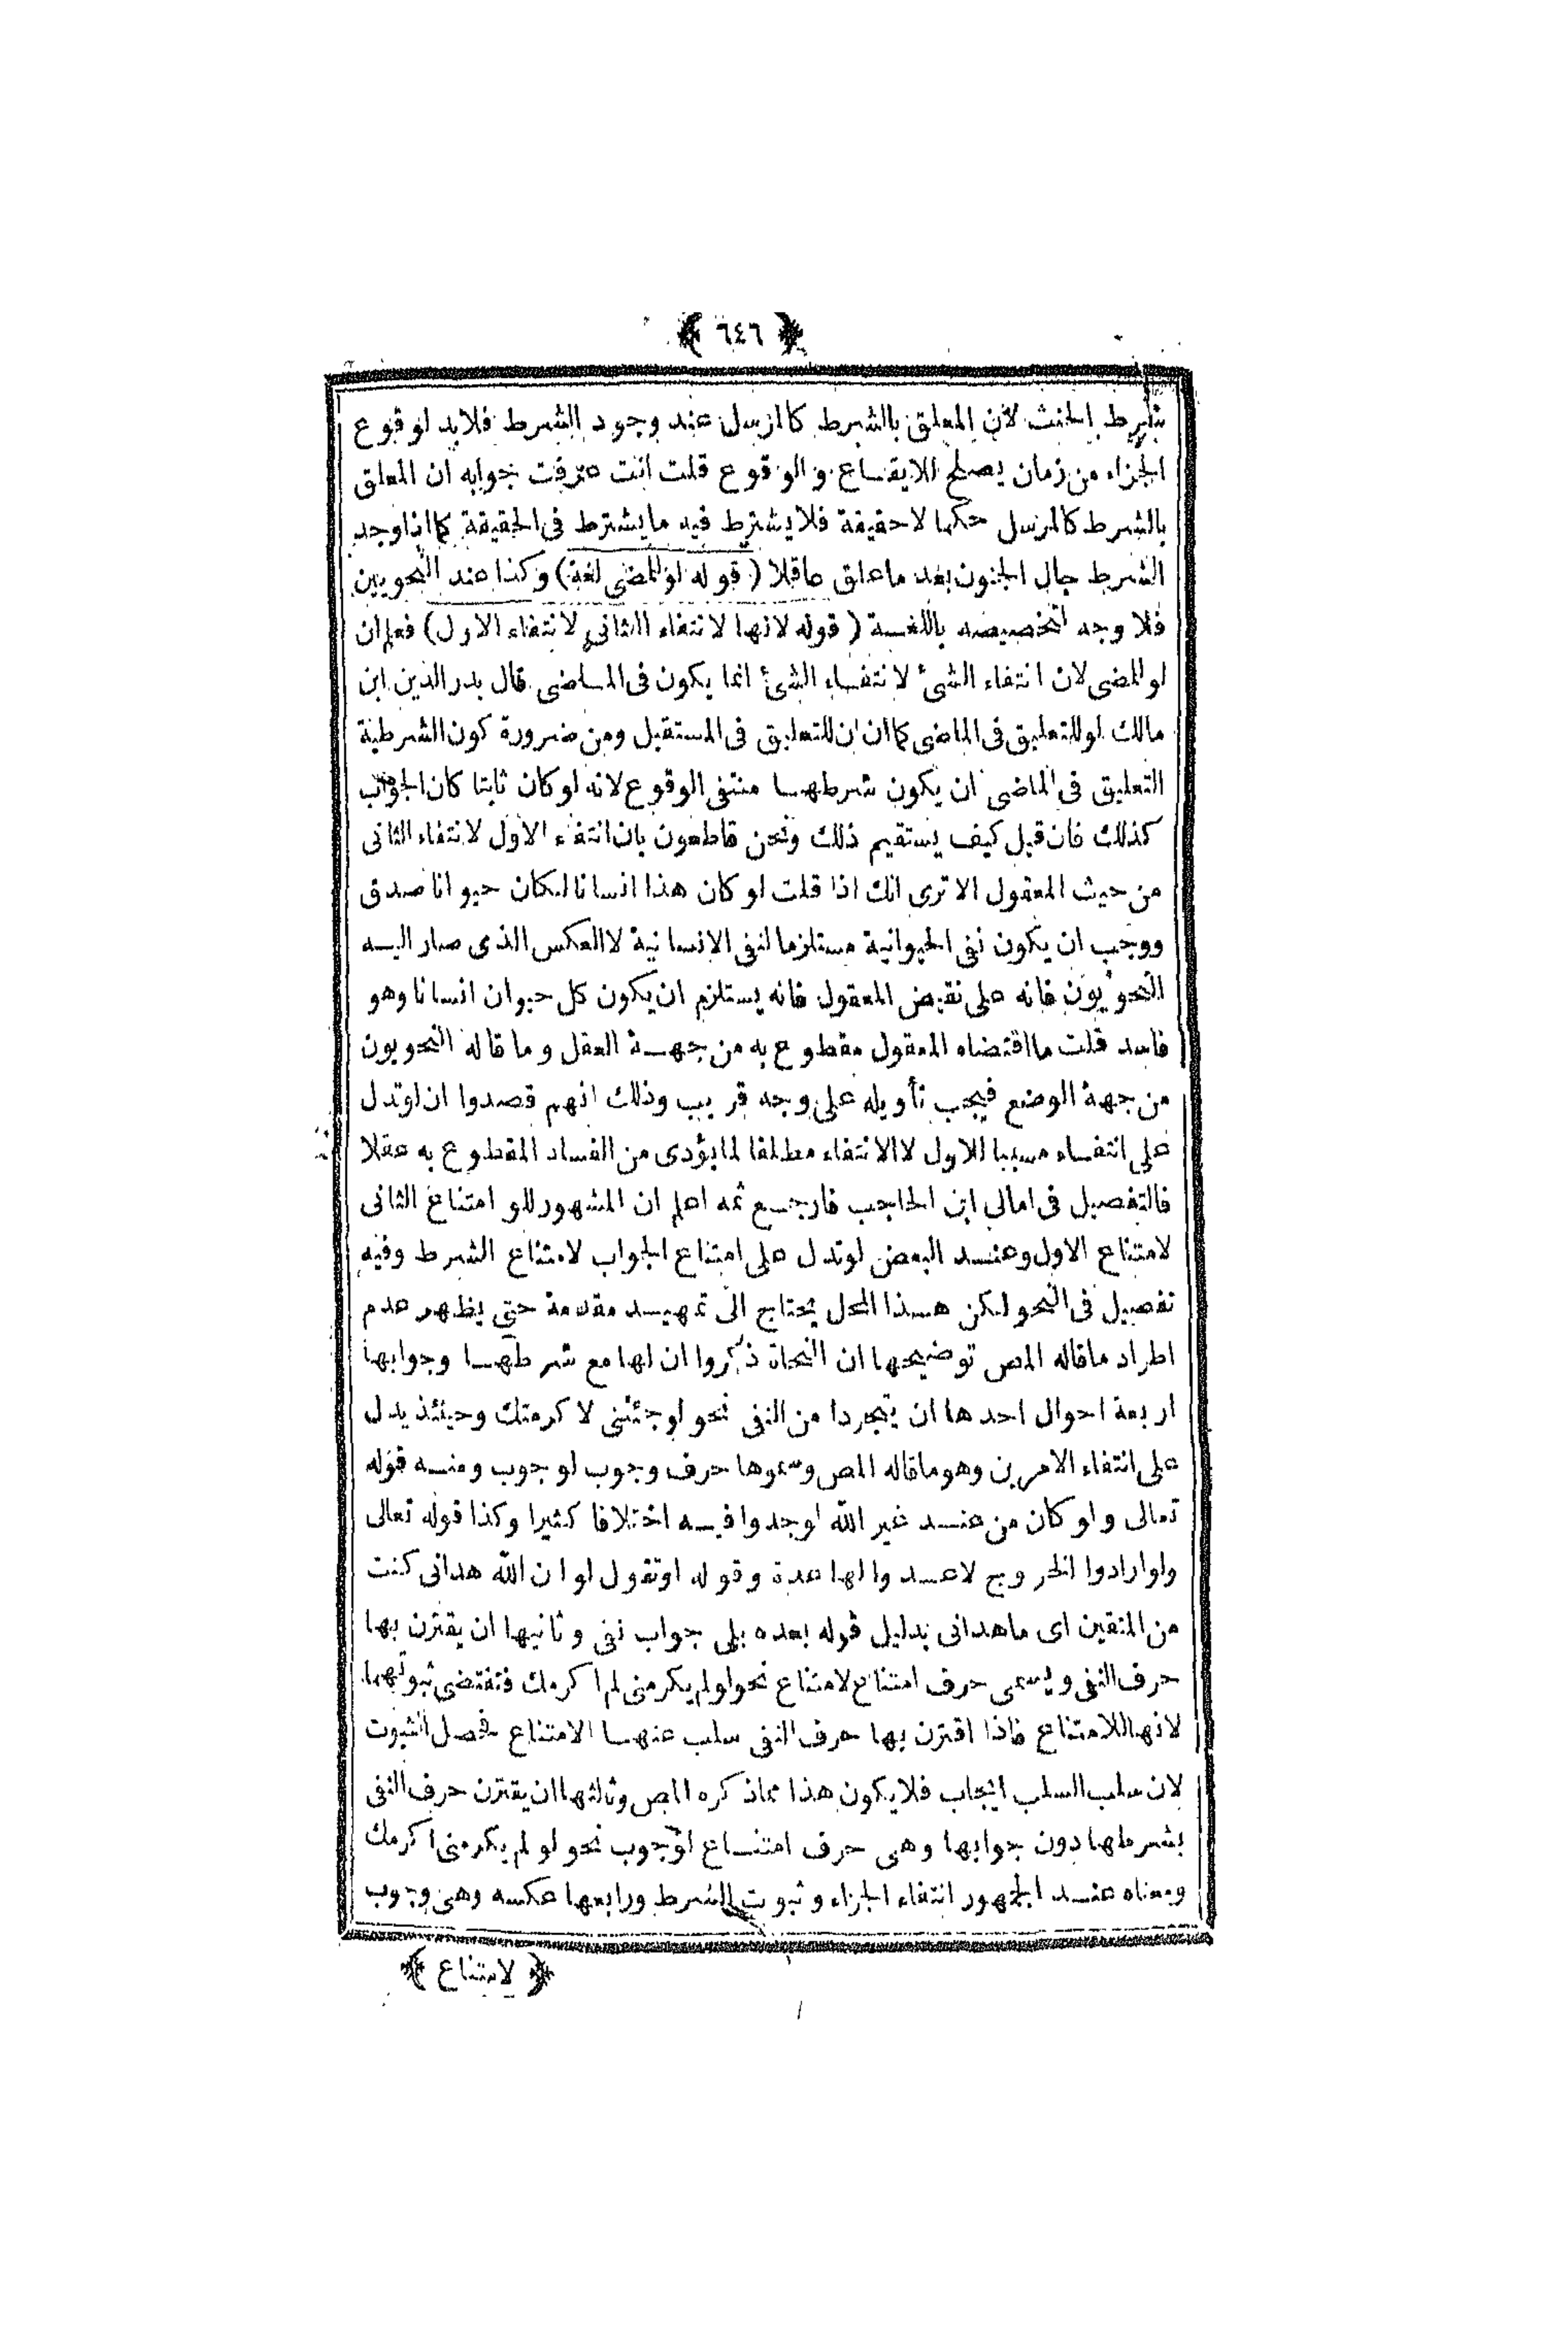 ﴿ ٦٤٦ ﴾
شرط الحنث لان المعلق بالشرط كالمرسل عند وجود الشرط فلابد لوقوع
الجزاء من زمان يصلح للايقاع والوقوع قلت انت عرفت جوابه ان المعلق
بالشرط كالمرسل حكما لا حقيقة فلا يشترط فيه ما يشترط فى الحقيقة كما اذا وجد
الشرط حال الجنون بعد ما علق عاقلا ( قوله لو للمضى لغة ) وكذا عند النحويين
فلا وجه لتخصيصه باللغة ( قوله لانها لانتفاء الثانى لانتفاء الاول ) فعلم ان
لو للمضى لان انتفاء الشئ لانتفاء الشئ انما يكون فى الماضى قال بدر الدين ابن
مالك لو للتعليق فى الماضى كما ان ان للتعليق فى المستقبل ومن ضرورة كون الشرطية
التعليق فى الماضى ان يكون شرطها منتفى الوقوع لانه لو كان ثابتا كان الجواب
كذلك فان قيل كيف يستقيم ذلك ونحن قاطعون بان انتفاء الاول لانتفاء الثانى
من حيث المعقول الا ترى انك اذا قلت لو كان هذا انسانا لكان حيوانا صدق
ووجب ان يكون نفى الحيوانية مستلزما لنفى الانسانية لا العكس الذى صار اليه
النحويون فانه على نقيض المعقول فانه يستلزم ان يكون كل حيوان انسانا وهو
فاسد قلت ما اقتضاه المعقول مقطوع به من جهة العقل وما قاله النحويون
من جهة الوضع فيجب تأويله على وجه قريب وذلك انهم قصدوا ان لو تدل
على انتفاء مسببا للاول لا الانتفاء مطلقا لما يؤدى من الفساد المقطوع به عقلا
فالتفصيل فى امالى ابن الحاجب فارجع ثمه اعلم ان المشهور للو امتناع الثانى
لامتناع الاول وعند البعض لو تدل على امتناع الجواب لامتناع الشرط وفيه
تفصيل فى النحو لكن هذا المحل يحتاج الى تمهيد مقدمة حتى يظهر عدم
اطراد ما قاله المص توضيحها ان النحاة ذكروا ان لها مع شرطها وجوابها
اربعة احوال احدها ان يتجردا من النفى نحو لو جئتنى لاكرمتك وحينئذ يدل
على انتفاء الامرين وهو ما قاله المص وسموها حرف وجوب لوجوب ومنه قوله
تعالى ولو كان من عند غير الله لوجدوا فيه اختلافا كثيرا وكذا قوله تعالى
ولو ارادوا الخروج لاعدوا لها عدة وقوله او تقول لو ان الله هدانى كنت
من المتقين اى ما هدانى بدليل قوله بعده بلى جواب نفى وثانيها ان يقترن بها
حرف النفى ويسمى حرف امتناع لامتناع نحو لو لم يكرمنى لم اكرمك فتقتضى ثبوتهما
لانها للامتناع فاذا اقترن بها حرف النفى سلب عنها الامتناع فحصل الثبوت
لان سلب السلب ايجاب فلا يكون هذا مما ذكره المص وثالثها ان يقترن حرف النفى
بشرطها دون جوابها وهى حرف امتناع لوجوب نحو لو لم يكرمنى اكرمك
ومعناه عند الجمهور انتفاء الجزاء وثبوت الشرط ورابعها عكسه وهى وجوب
﴿ لامتناع ﴾